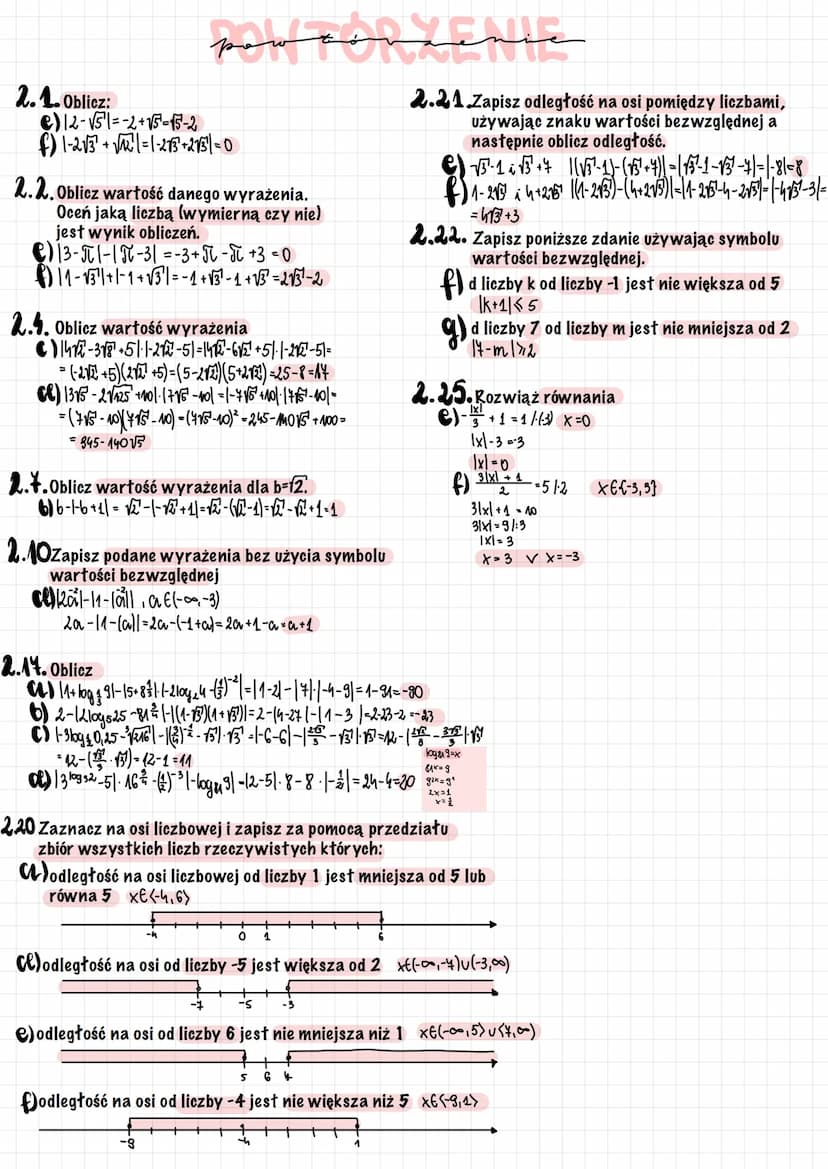 POWTÓRZENIE
powtórzenie
2.1. Oblicz:
e) |2-√5|=-2+√5=√5-2
f) |-2√3+√12|=|-2√3+2√3|=0
2.2. Oblicz wartość danego wyrażenia.
Oceń jaką liczbą (wymierną czy nie)
jest wynik obliczeń.
e) |3-π|-|π-3| =-3+π-π+3=0
f) |1-√3|+|-1+√3|=-1+√3-1+√3=2√3-2
2.4. Oblicz wartość wyrażenia
c) |4√2-3√8+5|·|-2√2-5|=|4√2-6√2+5|·|-2√2-5|=
=(-2√2+5)(2√2+5)=(5-2√2)(5+2√2)=25-8=17
d) |3√5-2√125+10|·|7√5-10|=|-7√5+10|·|7√5-10|=
=(7√5-10)(7√5-10)=(7√5-10)²=245-140√5+100=
=345-140√5
2.7. Oblicz wartość wyrażenia dla b=√2.
b) b-|-b+1|=√2-|-√2+1|=√2-(√2-1)=√2-√2+1=1
2.10 Zapisz podane wyrażenia bez użycia symbolu
wartości bezwzględnej
d) , a∈(-∞,-3)
2a-|1-(a)|=2a-(-1+a)=2a+1-a=a+1
2.17. Oblicz
a) =|1-2|-|7|·|-4-9|=1-91=-90
b)
c)
=12-1=11
log₈₁9=x
81ˣ=9
2x=1
x=½
d) =|2-5|·8-8·|-½|=24-4=20
2.20 Zaznacz na osi liczbowej i zapisz za pomocą przedziału
zbiór wszystkich liczb rzeczywistych których:
a) odległość na osi liczbowej od liczby 1 jest mniejsza od 5 lub
równa 5 x∈<-4,6>
-4 0 1 6
d) odległość na osi od liczby -5 jest większa od 2 x∈(-∞,-7)∪(-3,∞)
-7 -5 -3
e) odległość na osi od liczby 6 jest nie mniejsza niż 1 x∈(-∞,5>∪<7,∞)
5 6 7
f) odległość na osi od liczby -4 jest nie większa niż 5 x∈<-9,1>
-9 -4 1
2.21. Zapisz odległość na osi pomiędzy liczbami,
używając znaku wartości bezwzględnej a
następnie oblicz odległość.
e) √3-1 i √3+7 |(√3-1)-(√3+7)|=|√3-1-√3-7|=|-8|=8
f) 1-2√3 i 4+2√3 |(1-2√3)-(4+2√3)|=|1-2√3-4-2√3|=|-4√3-3|=
=4√3+3
2.22. Zapisz poniższe zdanie używając symbolu
wartości bezwzględnej.
f) d liczby k od liczby -1 jest nie większa od 5
|k+1|≤5
g) d liczby 7 od liczby m jest nie mniejsza od 2
|7-m|≥2
2.25. Rozwiąż równania
e) -|x|/3 + 1 = 1 /·(-3) x=0
|x|-3=-3
|x|=0
f) (3|x|+1)/2 =5 /·2 x∈{-3,3}
3|x|+1=10
3|x|=9 /:3
|x|=3
x=3 ∨ x=-3